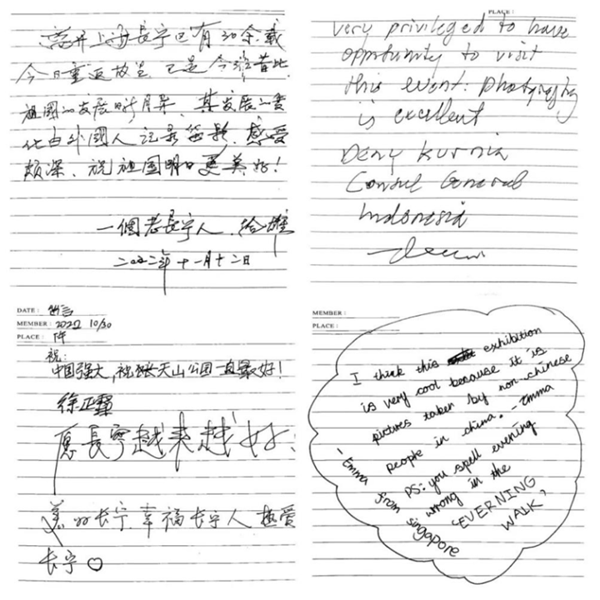 离开上海长宁区有30余载
今日重返故里 已是今非昔比
祖国的发展日新月异 其发展之变
化由外国人记录留影，感受
颇深，祝祖国明日更美好！
一個老長宁人
二〇二二年十一月十二日
PLACE :
very privileged to have
opportunity to visit
this event. photography
is excellent
Deny Kurnia
Consul General
Indonesia
DATE : 留言
MEMBER : 2022 10/30
PLACE :
祝：
中国强大，祝愿天山公园一直最好！
愿長寧越来越好
美的长宁 幸福长宁人 热爱
长宁♡
MEMBER :
PLACE :
I think this exhibition
is very cool because it is
pictures taken by non-chinese
people in china. -Emma
PS: you spell evening
wrong in the
'EVERNING
WALK'
-Emma
from
singapore